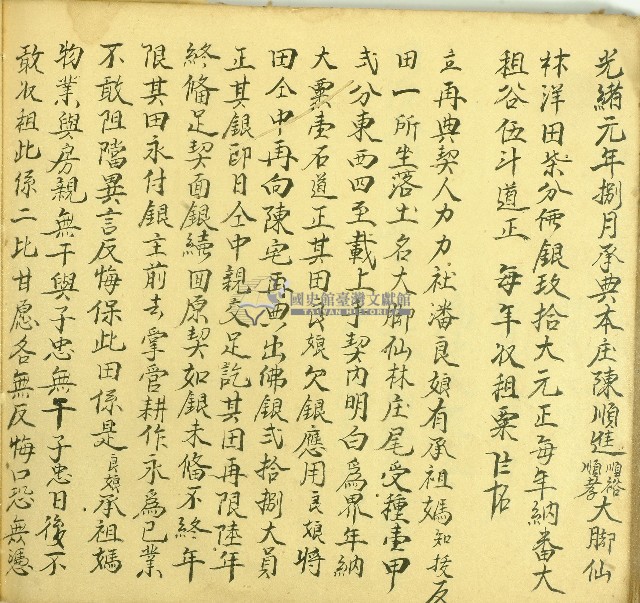 光緒元年捌月承典本庄陳順進順裕順孝大脚仙
林洋田柒分佛銀玖拾大元正每年納番大
租谷伍斗道正 每年收租粟
立再典契人力力社潘良娘有承祖媽知投反
田一所坐落土名大脚仙林庄尾受種壹甲
弍分東西四至載上手契內明白為界年納
大粟壹石道正其田良娘欠銀應用良娘將
田仝中再向陳宅再典出佛銀弍拾捌大員
正其銀即日仝中親交足訖其田再限陸年
終備足契面銀續回原契如銀未備不終年
限其田永付銀主前去掌管耕作永為己業
不敢阻擋異言反悔保此田係是良娘承祖媽
物業與房親無干與子忠無干子忠日後不
敢收租此係二比甘愿各無反悔口恐無憑
國史館臺灣文獻館
TAIWAN HISTORICA